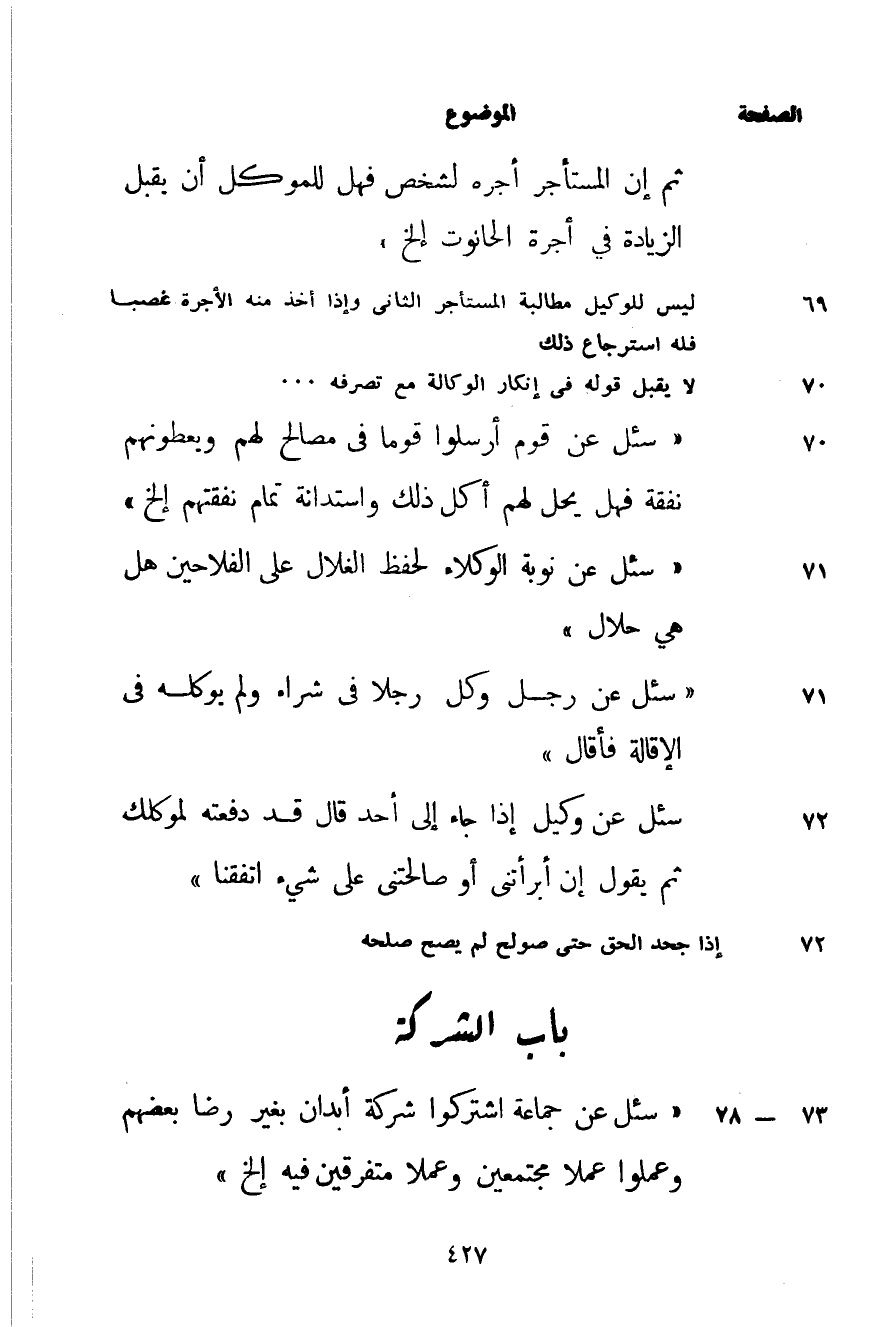 الصفحة الموضوع
ثم إن المستأجر أجره لشخص فهل للموكل أن يقبل
الزيادة في أجرة الحانوت إلخ »
٦٩ ليس للوكيل مطالبة المستأجر الثانى وإذا أخذ منه الأجرة غصبا
فله استرجاع ذلك
٧٠ لا يقبل قوله فى إنكار الوكالة مع تصرفه ...
٧٠ « سئل عن قوم أرسلوا قوما فى مصالح لهم ويعطونهم
نفقة فهل يحل لهم أكل ذلك واستدانة تمام نفقتهم إلخ »
٧١ « سئل عن نوبة الوكلاء لحفظ الغلال على الفلاحين هل
هي حلال »
٧١ « سئل عن رجل وكل رجلا فى شراء ولم يوكله فى
الإقالة فأقال »
٧٢ سئل عن وكيل إذا جاء إلى أحد قال قد دفعته لموكلك
ثم يقول إن أبرأتنى أو صالحتنى على شيء اتفقنا »
٧٢ إذا جحد الحق حتى صولح لم يصح صلحه
باب الشركة
٧٣ — ٧٨ « سئل عن جماعة اشتركوا شركة أبدان بغير رضا بعضهم
وعملوا عملا مجتمعين وعملا متفرقين فيه إلخ »
٤٢٧